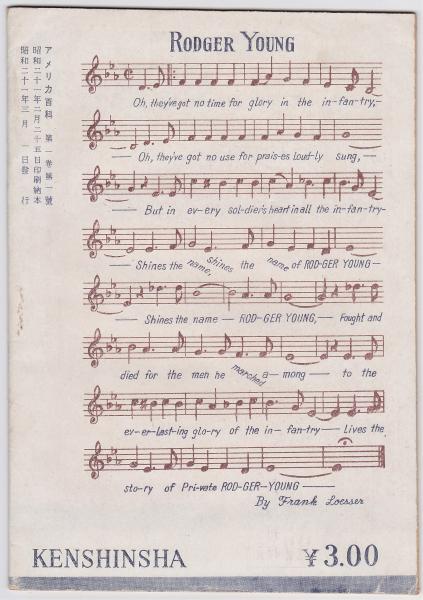 RODGER YOUNG
アメリカ百科 第一卷第一號
昭和二十一年二月二十五日印刷納本
昭和二十一年三月 一日發行
Oh, they've got no time for glory in the in-fan-try,-
— Oh, they've got no use for prais-es loud-ly sung,—
— But in ev-ery sol-dier's heart in all the in-fan-try-
— Shines the name, shines the name of ROD-GER YOUNG —
— Shines the name — ROD-GER YOUNG,— Fought and
died for the men he marched a-mong — to the
ev-er-last-ing glo-ry of the in-fan-try — Lives the
sto-ry of Pri-vate ROD-GER-YOUNG —
By Frank Loesser
KENSHINSHA ¥3.00